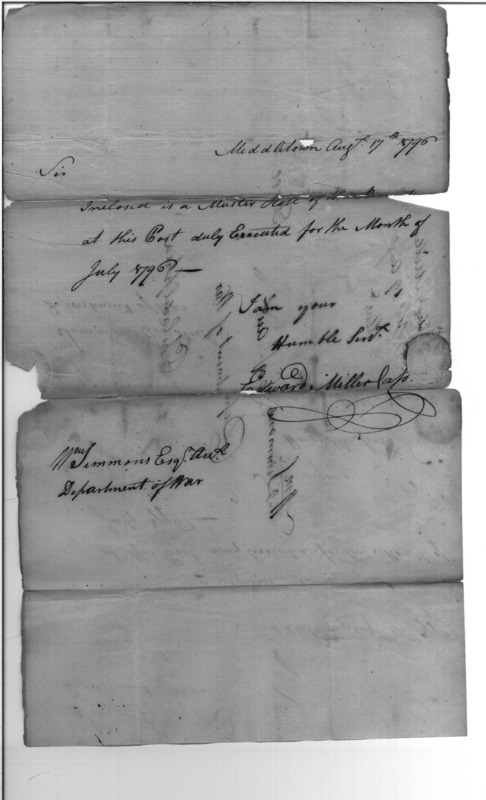 Middletown Augt. 17th 1796
Sir
Inclosed is a Muster Roll of the
at this Post duly Executed for the Month of
July 1796 —
I am your
Humble Servt.
Edward Miller Cap.
Wm Simmons Esqr. Acct.
Department of War